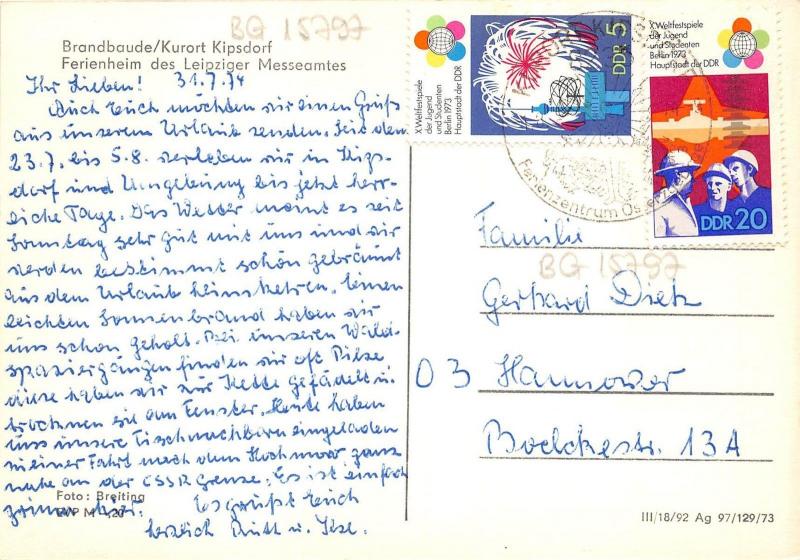 BG 15797
Brandbaude/Kurort Kipsdorf
Ferienheim des Leipziger Messeamtes
Ihr Lieben! 31.7.74
Auch Euch möchten wir einen Gruß
aus unserem Urlaub senden. Seit dem
23.7. bis 5.8. verleben wir in Kips-
dorf und Umgebung bis jetzt herr-
liche Tage. Das Wetter meint es seit
Sonntag sehr gut mit uns und wir
werden bestimmt schön gebräunt
aus dem Urlaub heimkehren. Einen
leichten Sonnenbrand haben wir
uns schon geholt. Bei unseren Wald-
spaziergängen finden wir oft Pilze
diese haben wir zur Kette gefädelt u.
trocknen sie am Fenster. Heute haben
uns unsere Tischnachbarn eingeladen
zu einer Fahrt nach dem Hochmoor ganz
nahe an der CSSR Grenze. Es ist einfach
hier. Es grüßt Euch
herzlich Ruth u. Ilse.
Foto: Breiting
EVP M -,20
X. Weltfestspiele
der Jugend
und Studenten
Berlin 1973
Hauptstadt der DDR
DDR 5
X. Weltfestspiele
der Jugend
und Studenten
Berlin 1973
Hauptstadt der DDR
DDR 20
Ferienzentrum
Familie
BG 15797
Gerhard Dietz
03 Hannover
Boelckestr. 13A
III/18/92 Ag 97/129/73